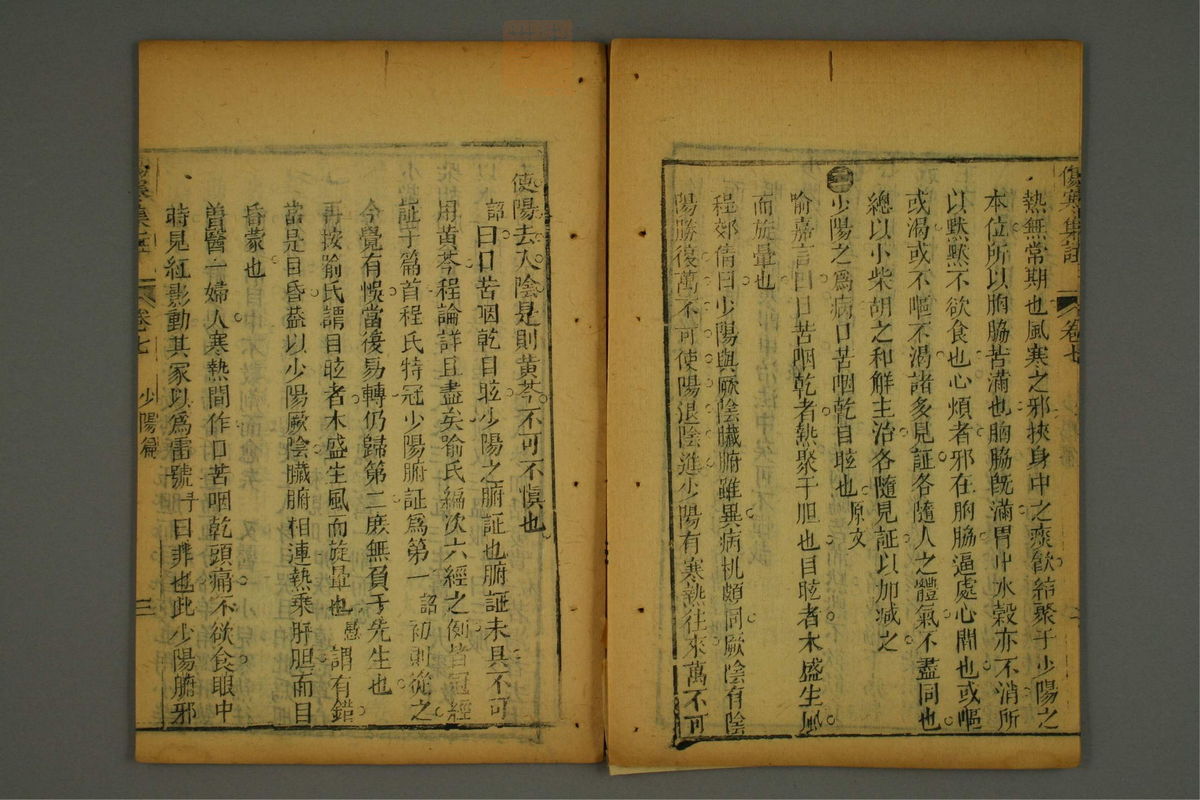 傷寒集註
卷七
熱無常期也風寒之邪挾身中之痰飲結聚于少陽之
本位所以胸脇苦滿也胸脇旣滿胃中水穀亦不消所
以默默不欲食也心煩者邪在胸脇逼處心間也或嘔
或渴或不嘔不渴諸多見証各隨人之體氣不盡同也
總以小柴胡之和解主治各隨見証以加减之
少陽之爲病口苦咽乾目眩也原文
喻嘉言曰口苦咽乾者熱聚于胆也目眩者木盛生風
而旋暈也
程郊倩曰少陽與厥陰臟腑雖異病机頗同厥陰有陰
陽勝復萬不可使陽退陰進少陽有寒熱往來萬不可
使陽去入陰是則黄芩不可不愼也
詔曰口苦咽乾目眩少陽之腑証也腑証未具不可
用黄芩程論詳且盡矣喻氏編次六經之例皆冠經
証于篇首程氏特冠少陽腑証爲第一詔初則從之
今覺有悞當後易轉仍歸第二庶無負于先生也
再按喻氏謂目眩者木盛生風而旋暈也愚謂有錯
當是目昏葢以少陽厥陰臟腑相連熱乘肝胆而目
昏蒙也
昔醫一婦人寒熱間作口苦咽乾頭痛不欲食眼中
時見紅影動其家以爲雷號予曰非也此少陽腑邪
傷寒集註
卷七
少陽篇
三